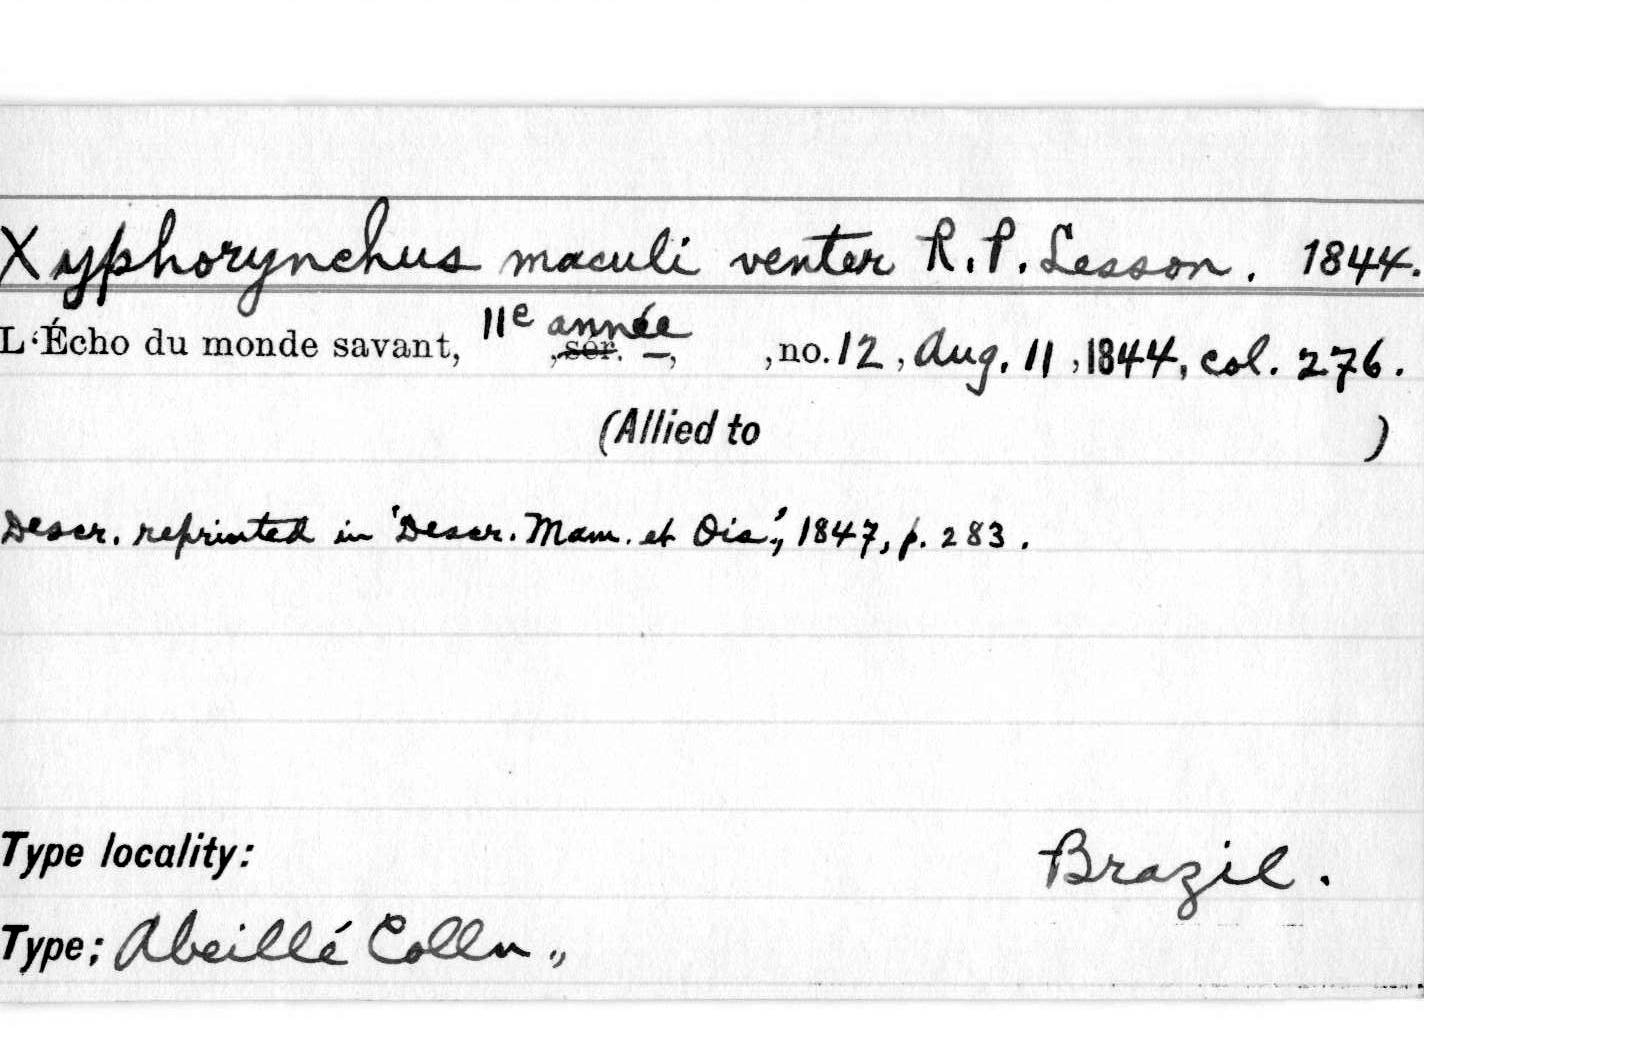 Xyphorynchus maculi venter R.P. Lesson. 1844.
L'Écho du monde savant, 11e année, sér. —, , no. 12, Aug. 11, 1844, col. 276.
(Allied to )
Descr. reprinted in 'Descr. Mam. et Ois.', 1847, p. 283.
Type locality: Brazil.
Type: Abeillé Colln.,